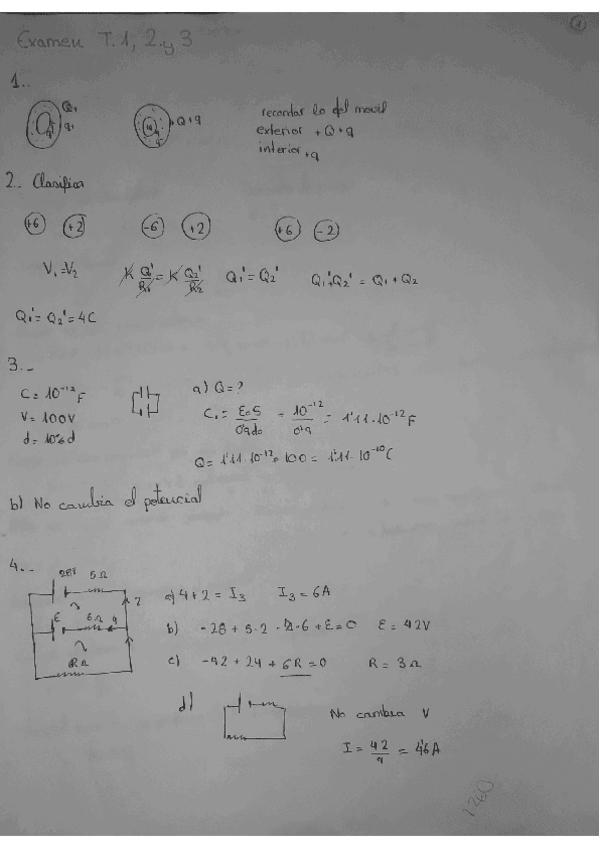 1
Examen T.1, 2 y 3
1..
Q1
q1
+Q+q
recordar lo del movil
exterior +Q+q
interior +q
2.. Clasificar
+6 +2 -6 +2 +6 -2
V1=V2 K Q1'/R1 = K Q2'/R2 Q1'=Q2' Q1'+Q2' = Q1+Q2
Q1'= Q2'=4C
3._
C= 10^-12 F
V= 100V
d= 10% d
a) Q=?
C1 = ε0S/0'9d0 = 10^-12/0'9 = 1'11·10^-12 F
Q= 1'11·10^-12·100 = 1'11·10^-10 C
b) No cambia el potencial
4._
28V 5Ω
2
E 6Ω 4
RΩ
a) 4+2 = I3 I3=6A
b) -28+5·2 -4·6+E=0 E=42V
c) -42+24+6R=0 R=3Ω
d)
No cambia V
I= 42/9 = 4'6A
1260